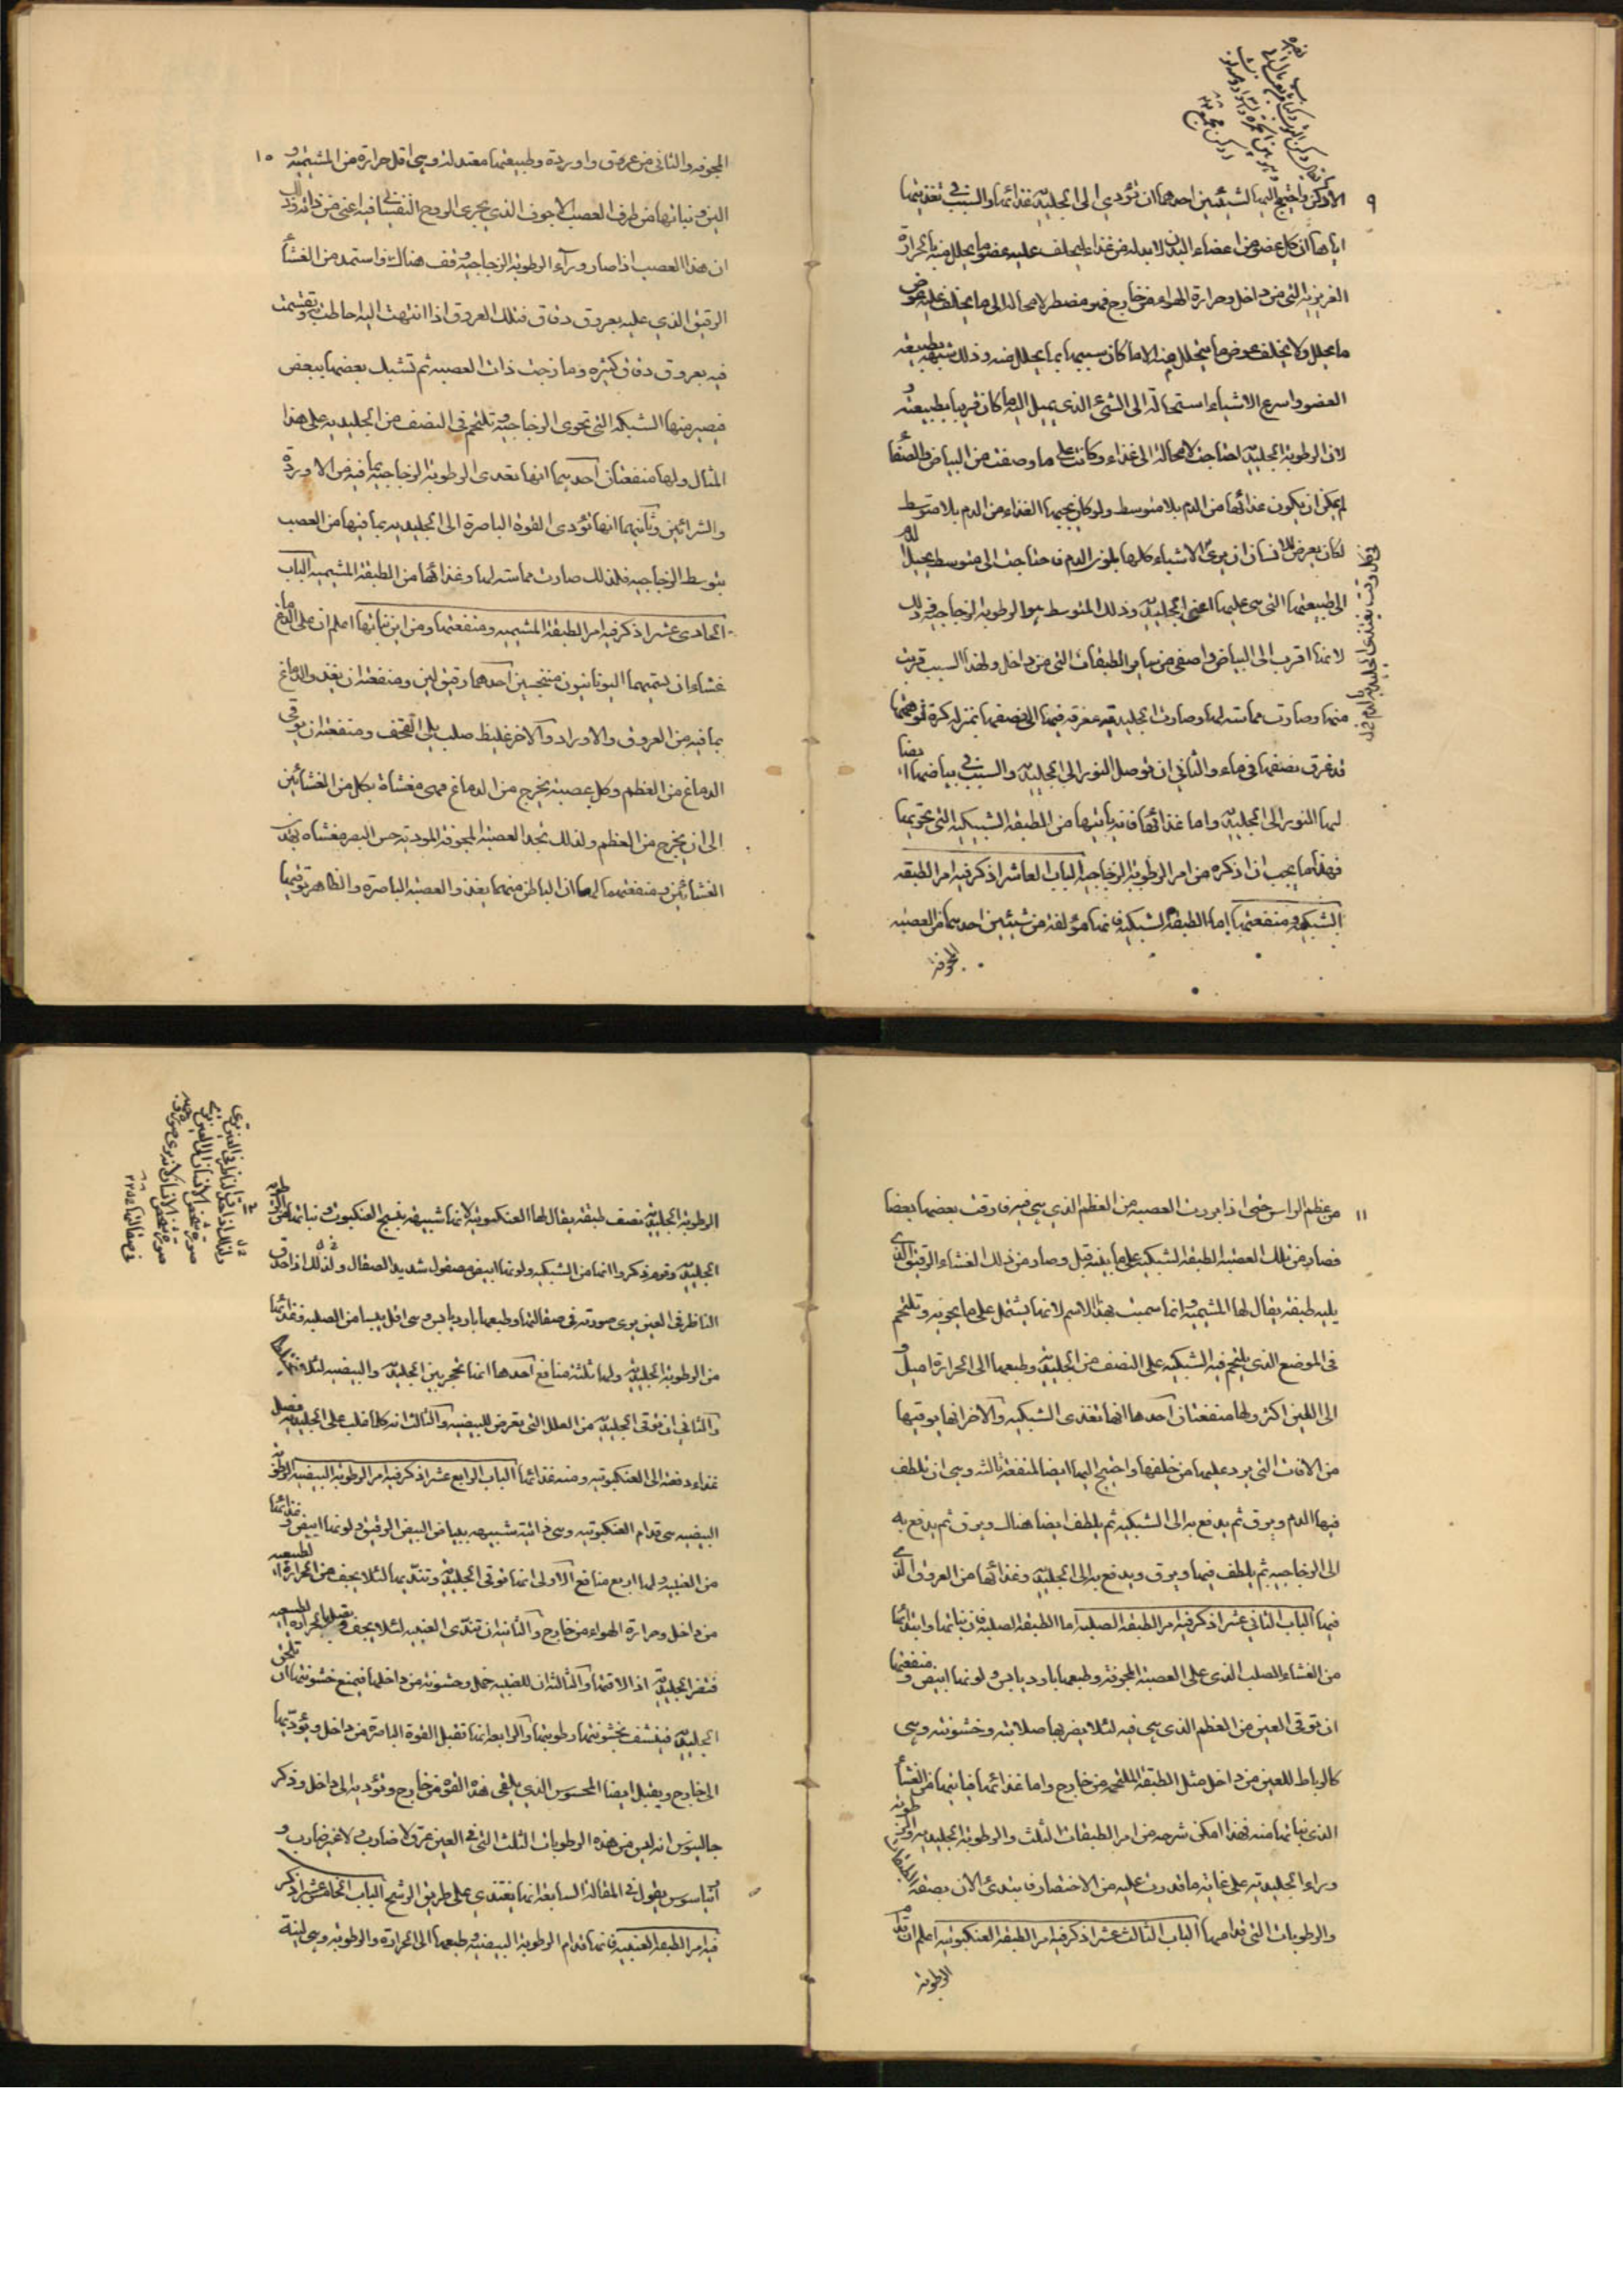 ٩
الاوكن واحتيج اليها لشيئين احدهما ان تؤدي الى الجليدية غذائها والسبب في تغذيتها
اياها ان كل عضو من اعضاء البدن لابد له من غذاء ليخلف عليه عوض ما يتحلل منه بالحرارة
الغريزية التي من داخل وحرارة الهواء من خارج فهو مضطر لا محالة الى ما يخلف عليه عوض
ما تحلل ولا يخلف عوض ما يتحلل منه الا ما كان شبيها بما يحلل منه وذلك شبيه بطبيعة
العضو واسرع الاشياء استحالة الى الشئ الذي يميل اليه ما كان قريبا بطبيعته و
لان الرطوبة الجليدية احتاجت لا محالة الى غذاء وكانت على ما وصفت من البياض والصفاء
لم يمكن ان يكون غذائها من الدم بلا متوسط ولو كان يجيئها الغذاء من الدم بلا متوسط
لكان يعرض للانسان ان يرى الاشياء كلها بلون الدم فاحتاجت الى متوسط يحيل الدم
الى طبيعتها التي هي عليها اعني الجليدية وذلك المتوسط هو الرطوبة الزجاجية وذلك
لانها اقرب الى البياض واصفى من سائر الطبقات التي من داخل ولهذا السبب قربت
منها وصارت مماسة لها وصارت الجليدية مغرقة فيها الى نصفها بمنزلة كرة
قد غرق نصفها في ماء والثاني ان توصل النور الى الجليدية والسبب في بياضها ايضا
لها النور الى الجليدية واما غذائها فانه يأتيها من الطبقة الشبكية التي تحويها
فهذا ما يجب ان اذكره من امر الرطوبة الزجاجية الباب العاشر اذكر فيه امر الطبقة
الشبكية ومنفعتها اما الطبقة الشبكية فانها مؤلفة من شيئين احدهما من العصبة
المجوفة
١٠
المجوفة والثاني من عروق واوردة وطبيعتها معتدلة وهي اقل حرارة من المشيمية و
الين ونباتها من طرف العصب الاجوف الذي يجري الروح النفساني فيه اعني من ذاته وذلك
ان هذا العصب اذا صار وراء الرطوبة الزجاجية وقف هناك واستمد من الغشاء
الرقيق الذي عليه بعروق دقاق فتلك العروق اذا انتهت اليه احاطت وتقسمت
فيه بعروق دقاق كثيرة ومازجت ذات العصبة ثم تشبك بعضها ببعض
فيصير منها الشبكة التي تحوى الزجاجية وتلتحم في النصف من الجليدية على هذا
المثال ولها منفعتان احديهما انها تغذى الرطوبة الزجاجية بما فيه من الاوردة
والشرائين وثانيهما انها تؤدى القوة الباصرة الى الجليدية بما فيها من العصب
بتوسط الزجاجية فلذلك صارت مماسة لها وغذائها من الطبقة المشيمية الباب
الحادى عشر اذكر فيه امر الطبقة المشيمية ومنفعتها ومن اين نباتها اعلم ان على الدماغ
غشاءان يسميهما اليونانيون مننجسين احدهما رقيق لين ومنفعته ان يغذو الدماغ
بما فيه من العروق والاوراد والاخر غليظ صلب يلى القحف ومنفعته ان يوقى
الدماغ من العظم وكل عصبة تخرج من الدماغ فهى مغشاة بكل من الغشائين
الى ان يخرج من العظم ولذلك نجد العصبة المجوفة المودية حس البصر مغشاة بهذين
الغشائين ومنفعتهما لها ان الباطن منهما يغذو العصبة الباصرة والظاهر توقيها
١١
من عظم الراس حتى اذا برزت العصبة من العظم الذي هي فيه فارقت بعضها بعضا
فصار من تلك العصبة الطبقة الشبكية على ما بينته قبل وصار من ذلك الغشاء الرقيق الذي
يليه طبقة يقال لها المشيمية وانما سميت بهذا الاسم لانها يشتمل على ما يحويه وتلتحم
في الموضع الذي يلتحم فيه الشبكية على النصف من الجليدية وطبعها الى الحرارة اميل و
الى اللين اكثر ولها منفعتان احدها انها تغذى الشبكية والاخر انها يوقيها
من الافات التي يرد عليها من خلفها واحتيج اليها ايضا لمنفعة ثالثة وهي ان تلطف
فيها الدم ويرق ثم يدفع به الى الشبكية ثم يلطف ايضا هناك ويرق ثم يدفع به
الى الزجاجية ثم يلطف فيها ويرق ويدفع به الى الجليدية وغذائها من العروق التي
فيها الباب الثاني عشر اذكر فيه امر الطبقة الصلبة اما الطبقة الصلبة فان نباتها وابتدائها
من الغشاء الصلب الذي على العصبة المجوفة وطبعها بارد يابس ولونها ابيض ومنفعتها
ان توقى العين من العظم الذي هي فيه لئلا يضر بها صلابته وخشونته وهي
كالرباط للعين من داخل مثل الطبقة الملتحمة من خارج واما غذائها فياتيها من الغشاء
الذي نباتها منه فهذا امكن شرحه من امر الطبقات الثلث والرطوبة الجليدية والرطوبة التي
وراء الجليدية على غاية ما قدرت عليه من الاختصار فابتدئ الان بصفة الطبقات
والرطوبات التي قدامها الباب الثالث عشر اذكر فيه امر الطبقة العنكبوتية اعلم ان قدام
الرطوبة
الرطوبة الجليدية نصف طبقة يقال لها العنكبوتية لانها شبيهة بنسج العنكبوت ونباتها من
الجليدية وقوم ذكروا انها من الشبكية ولونها ابيض مصقول شديد الصقال ولذلك اذا حدق
الناظر في العين يرى صورته في صقالتها وطبعها بارد يابس وهي اقل يبسا من الصلبة وغذائها
من الرطوبة الجليدية ولها ثلثة منافع احدها انها تحجز بين الجليدية والبيضية لئلا
والثاني ان توقى الجليدية من العلل التي تعرض للبيضية والثالث انه كلما غلب على الجليدية فضل
غذاء دفعته الى العنكبوتية ومنه غذائها الباب الرابع عشر اذكر فيه امر الرطوبة البيضية الرطوبة
البيضية هي قدام العنكبوتية وهي ذائبة شبيهه ببياض البيض الرقيق ولونها ابيض وغذائها
من العنبية ولها اربع منافع الاولى انها توقى الجليدية وتنديها لئلا يجف من الحرارة الطبيعية
من داخل وحرارة الهواء من خارج والثانية ان تندى العنبية لئلا يجف
فتضر الجليدية اذا لاقتها والثالث ان للعنبية خمل وخشونة من داخلها فيمنع خشونتها ان تلحق
الجليدية فينشف بخشونتها رطوبتها والرابعة انها تقبل القوة الباصرة من داخل ويؤديها
الى خارج ويقبل ايضا المحسوس الذي يلقى هذه القوة من خارج وتؤديه الى داخل وذكر
جالينوس انه ليس من هذه الرطوبات الثلث التي في العين عرق لا ضارب ولا غير ضارب و
يقول في المقالة السابعة انها يغتذى على طريق الرشح الباب الخامس عشر اذكر
فيه امر الطبقة العنبية فانها قدام الرطوبة البيضية وطبعها الى الحرارة والرطوبة وهي لينة